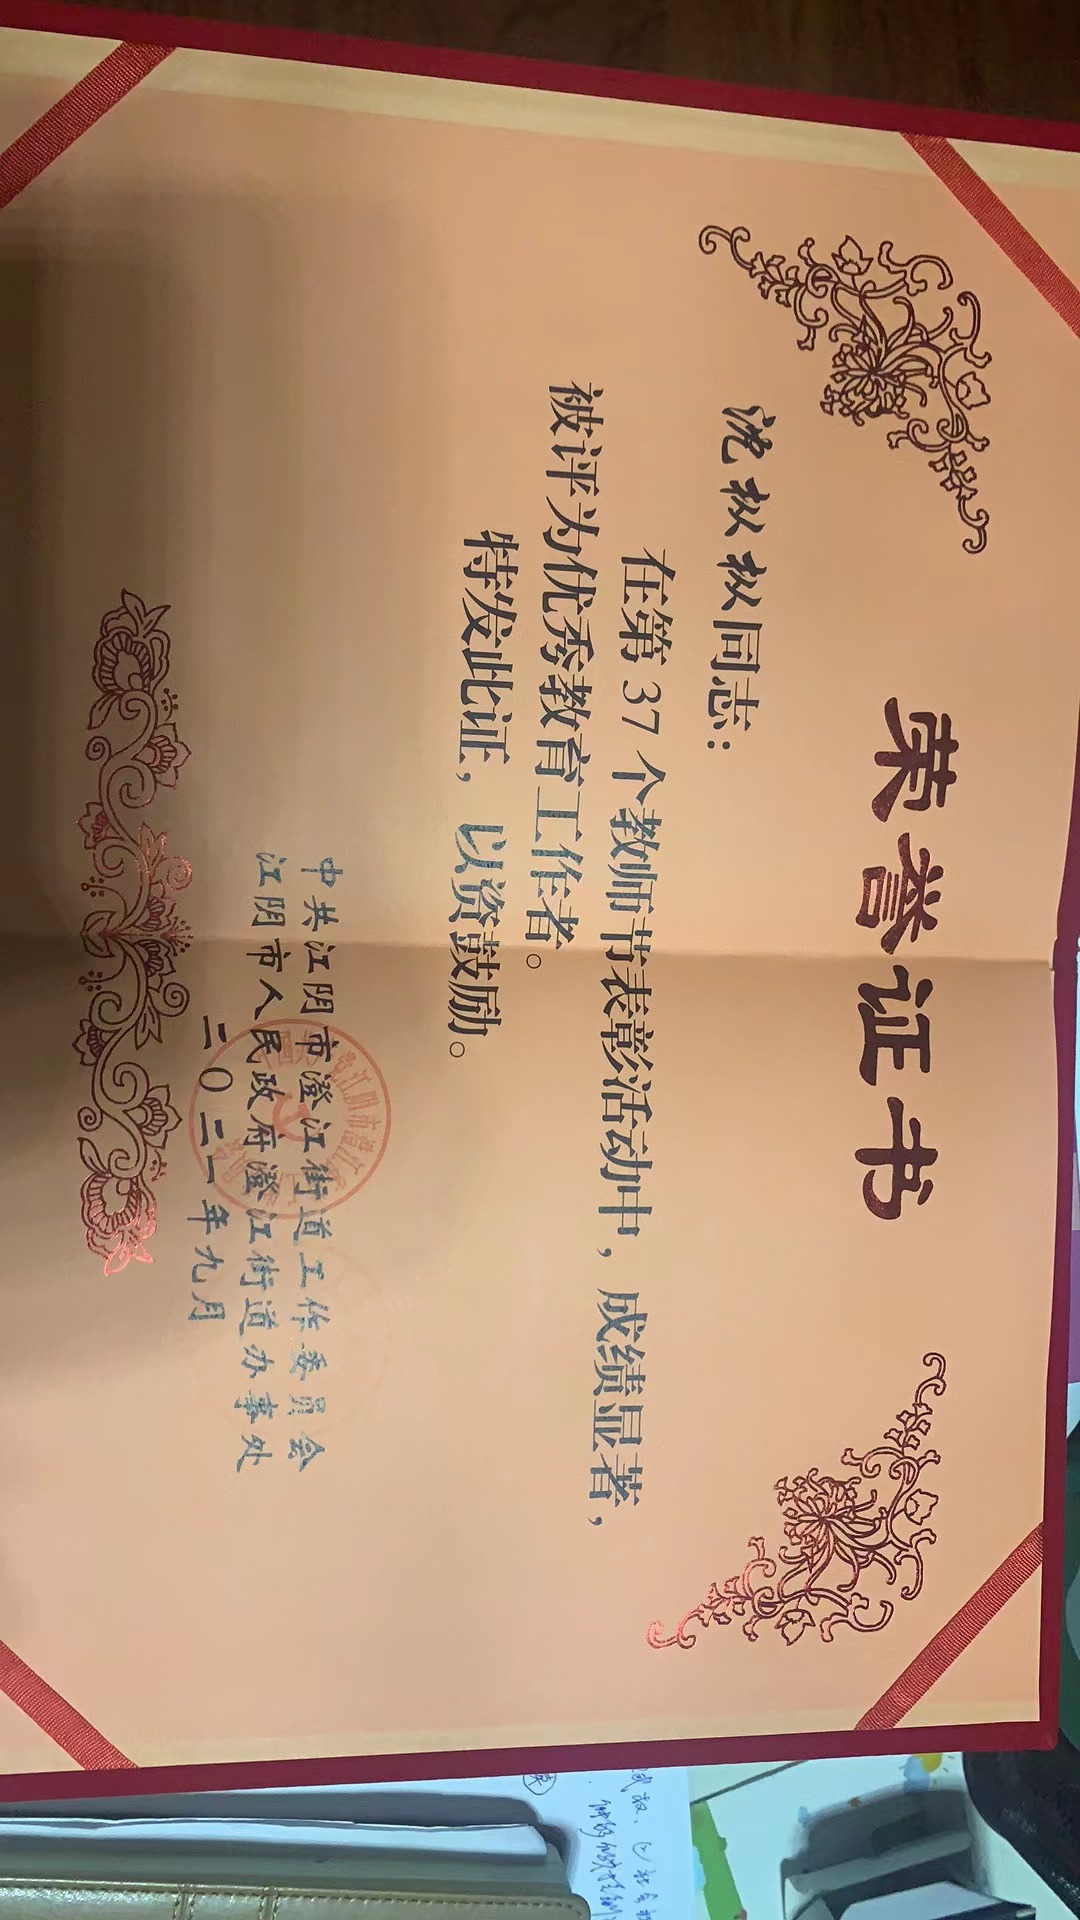 荣誉证书
沈枞枞同志：
在第37个教师节表彰活动中，成绩显著，
被评为优秀教育工作者。
特发此证，以资鼓励。
中共江阴市澄江街道工作委员会
江阴市人民政府澄江街道办事处
二〇二一年九月